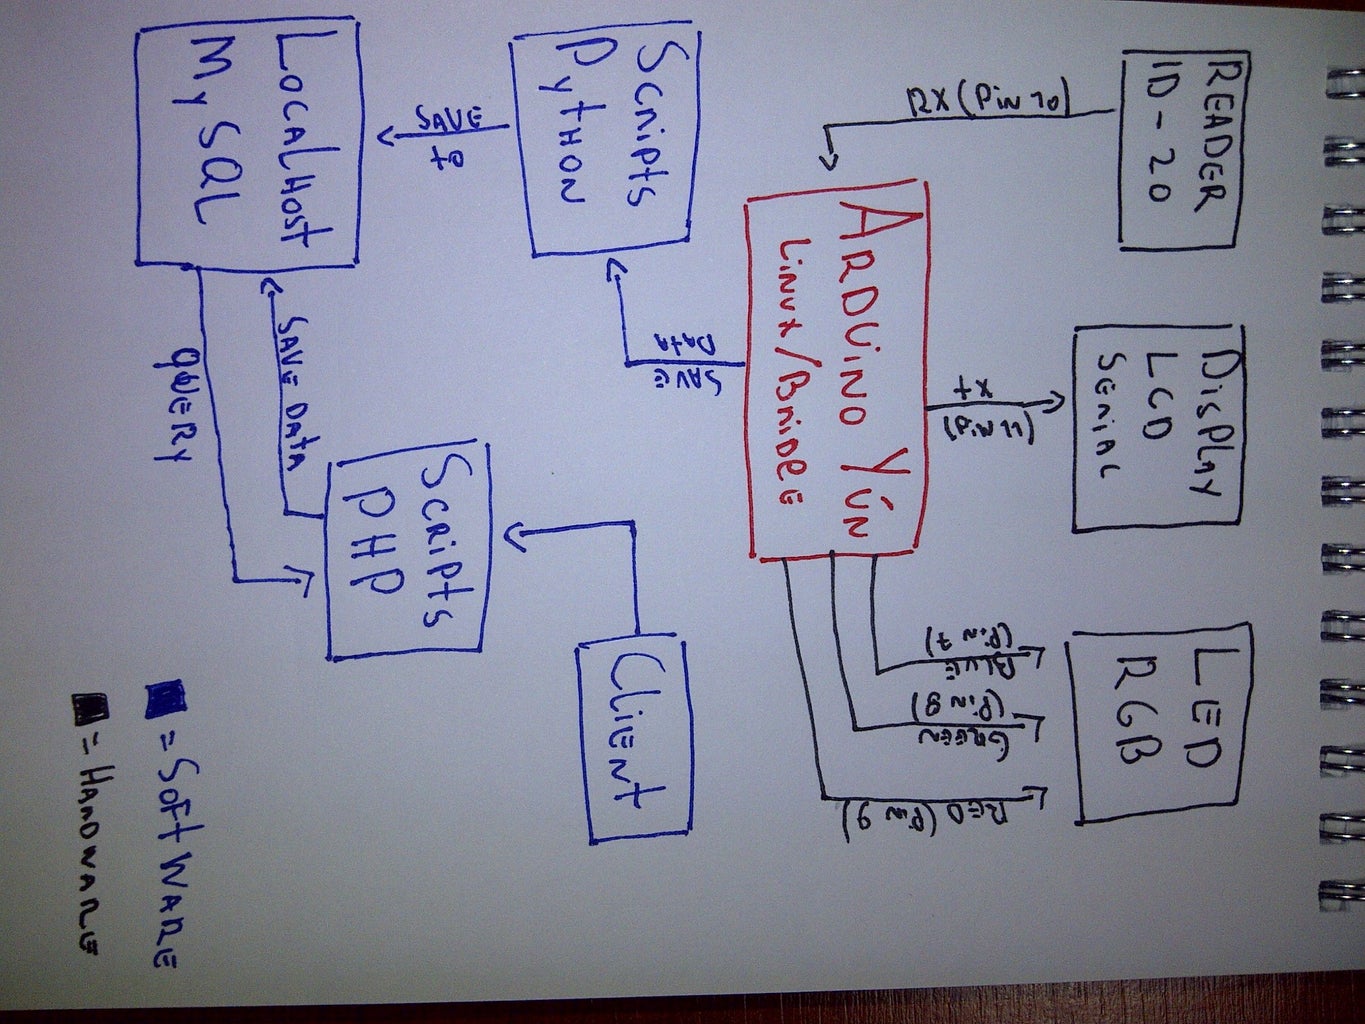 READER
ID-20
DisPlay
LCD
Serial
LED
RGB
RX (Pin 10)
TX
(Pin 11)
BLUE
(Pin 7)
GREEN
(Pin 8)
RED (Pin 9)
ARDUiNO YÚN
LiNUX/BRiDGE
SAVE
DATA
Scripts
PYTHON
SAVE
to
LOCALHOST
MySQL
SAVE DATA
QUERY
Scripts
PHP
CLiENT
= SOFTWARE
= HARDWARE